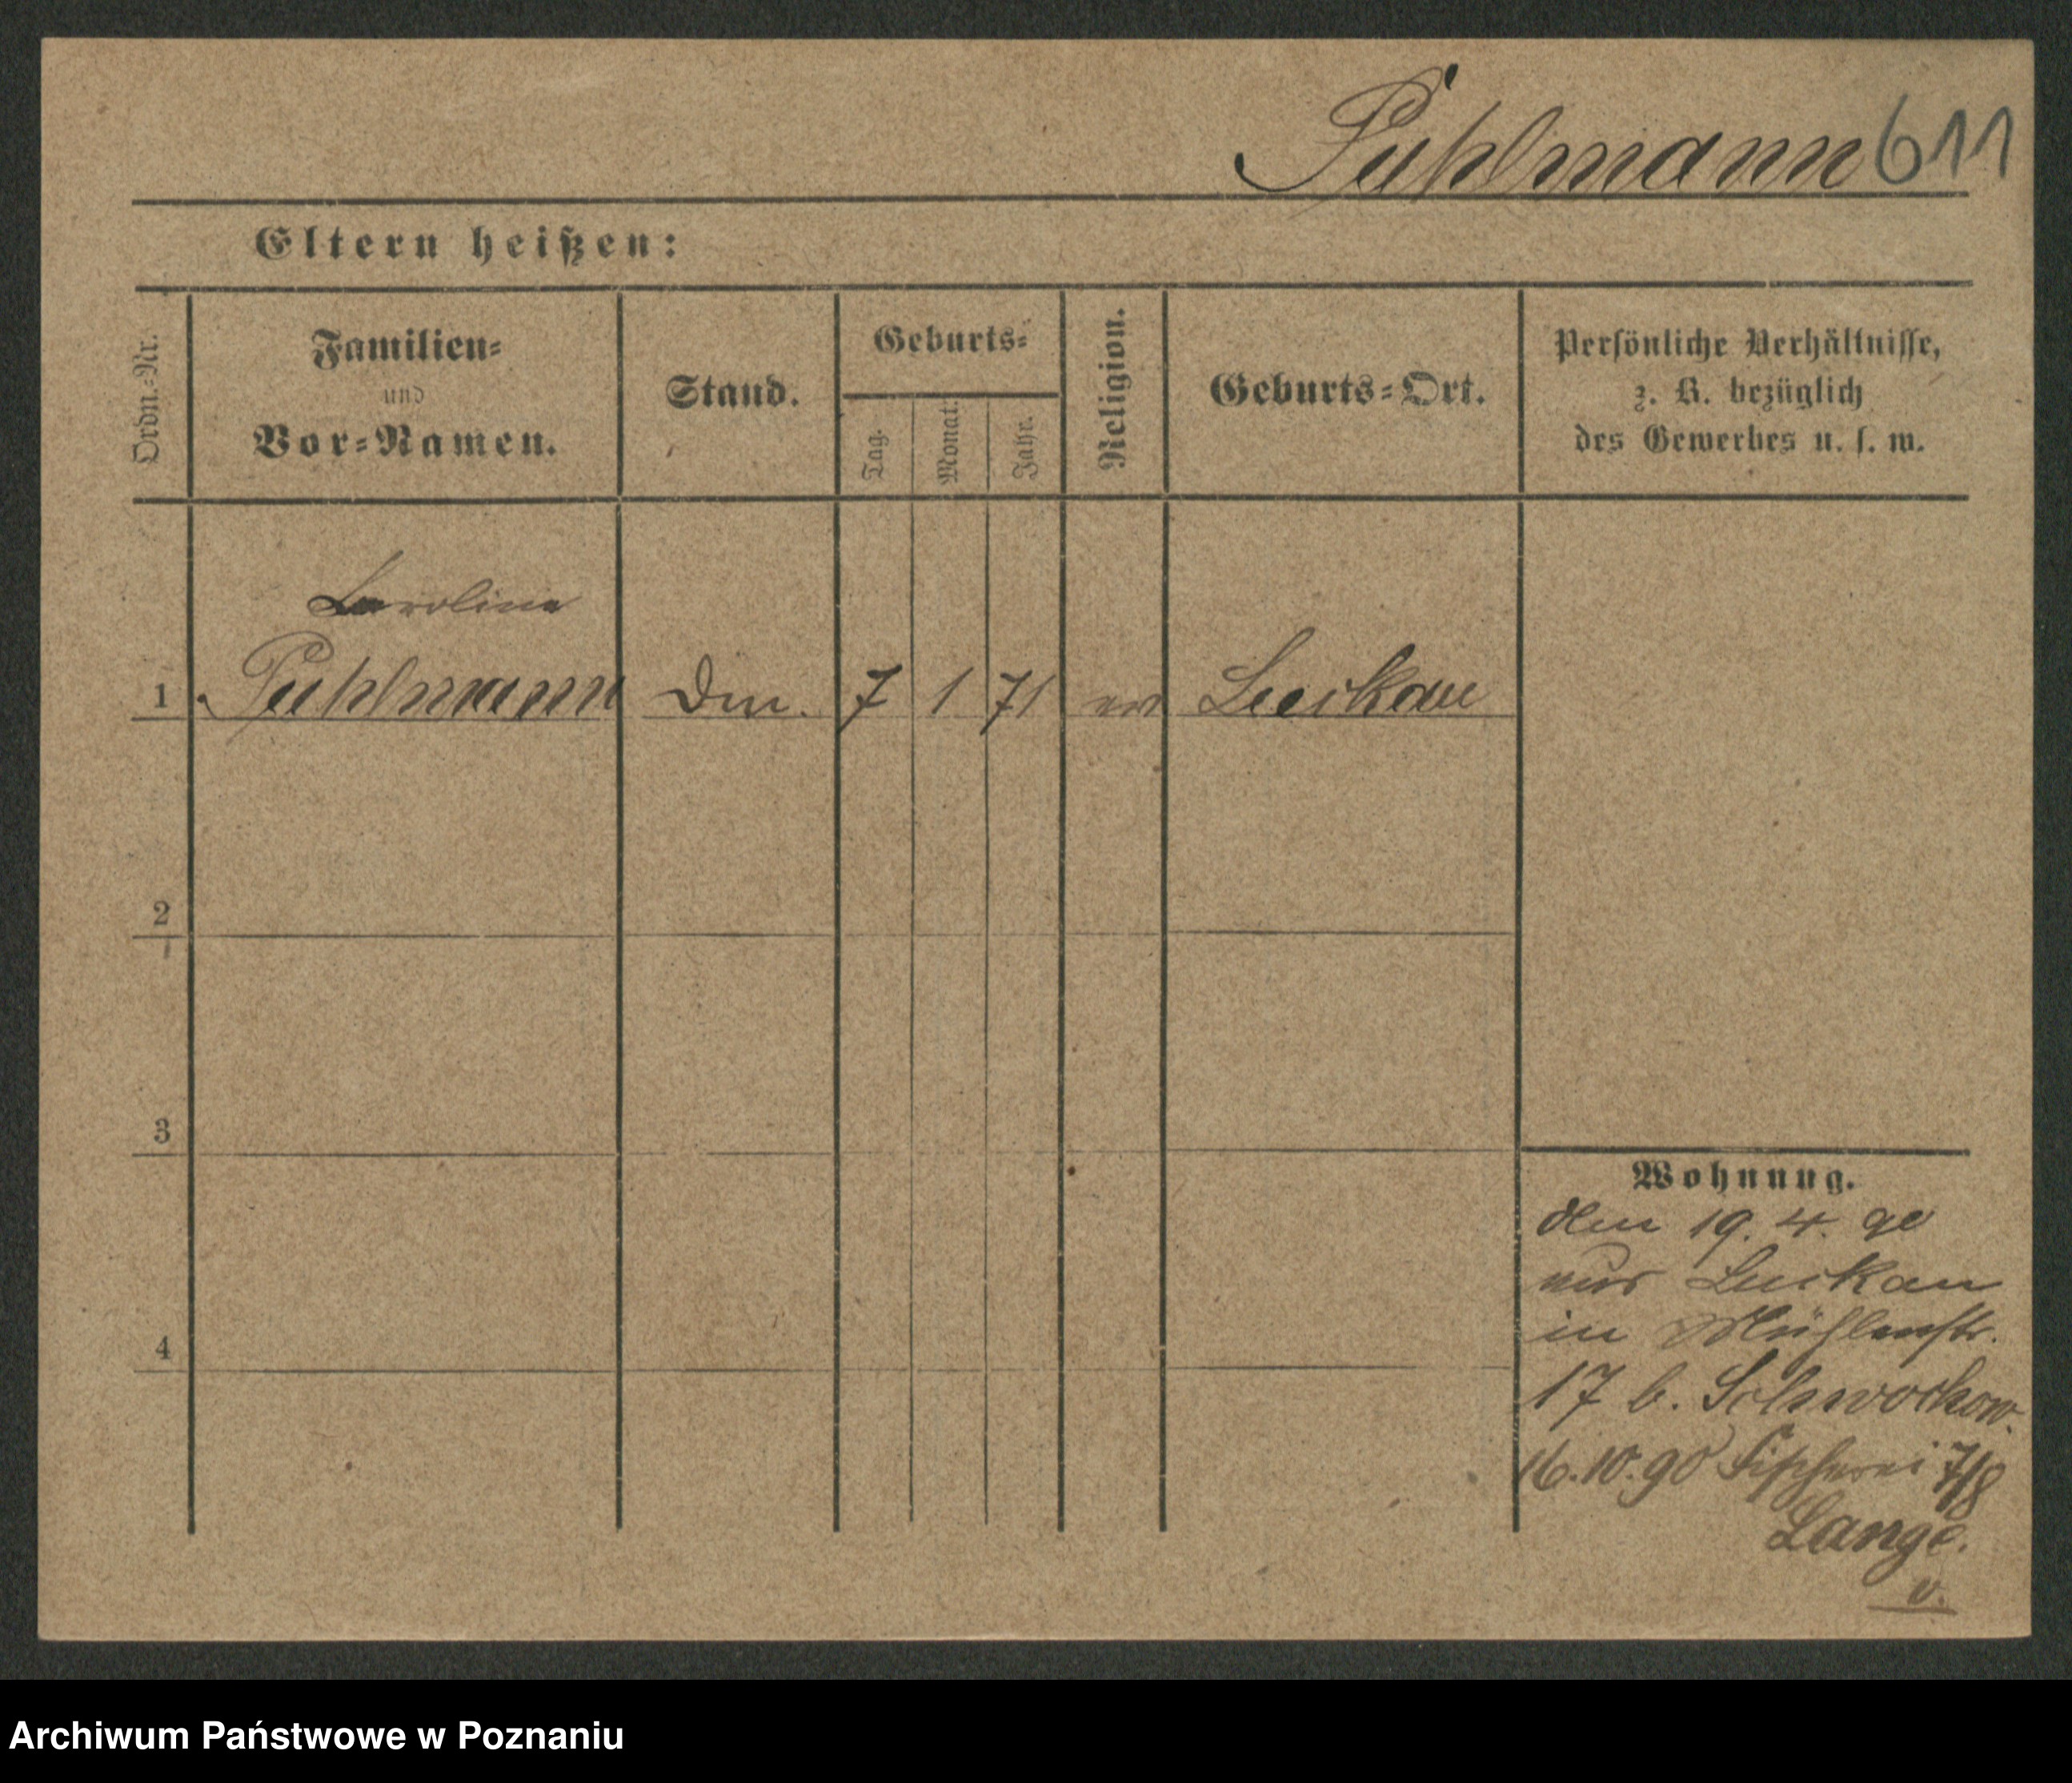 Puhlmann 611
Eltern heißen:
Ordn.=Nr.
Familien=
und
Vor=Namen.
Stand.
Geburts=
Tag.
Monat.
Jahr.
Religion.
Geburts=Ort.
Persönliche Verhältnisse,
z. B. bezüglich
des Gewerbes u. s. w.
Karoline
1 Puhlmann Dm. 7 1 71 ev Luckau
2
3
4
Wohnung.
den 19. 4. 90
aus Luckau
in Mühlenstr.
17 b. Schwochow.
16.10.90 Fischerei 7/8
Lange.
v.
Archiwum Państwowe w Poznaniu